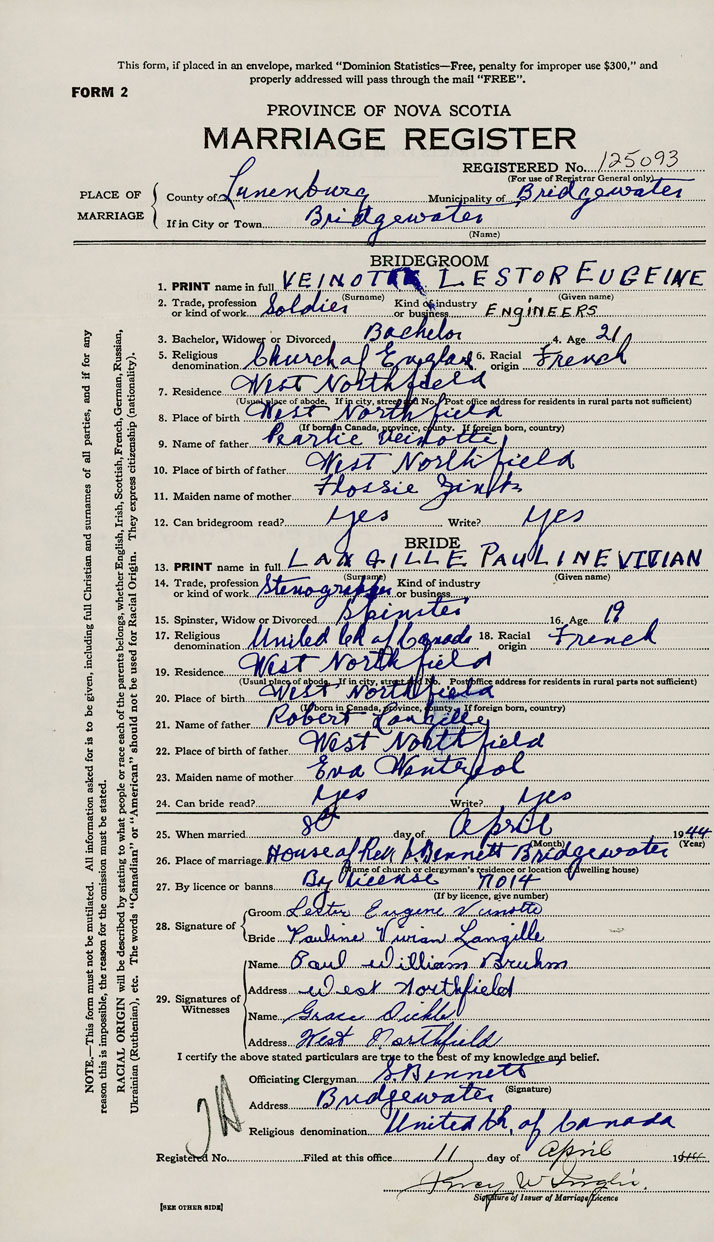 This form, if placed in an envelope, marked "Dominion Statistics—Free, penalty for improper use $300," and
properly addressed will pass through the mail "FREE".
FORM 2
PROVINCE OF NOVA SCOTIA
MARRIAGE REGISTER
REGISTERED No. 125093
(For use of Registrar General only)
PLACE OF MARRIAGE
County of Lunenburg Municipality of Bridgewater
If in City or Town Bridgewater
(Name)
BRIDEGROOM
1. PRINT name in full VEINOTT LESTOR EUGEINE
(Surname) (Given name)
2. Trade, profession or kind of work Soldier Kind of industry or business ENGINEERS
3. Bachelor, Widower or Divorced Bachelor 4. Age 21
5. Religious denomination Church of England 6. Racial origin French
7. Residence West Northfield
(Usual place of abode. If in city, street and No. Post office address for residents in rural parts not sufficient)
8. Place of birth West Northfield
(If born in Canada, province, county. If foreign born, country)
9. Name of father Pearlie Veinotte
10. Place of birth of father West Northfield
11. Maiden name of mother Flossie Zinck
12. Can bridegroom read? yes Write? yes
BRIDE
13. PRINT name in full LANGILLE PAULINE VIVIAN
(Surname) (Given name)
14. Trade, profession or kind of work Stenographer Kind of industry or business
15. Spinster, Widow or Divorced Spinster 16. Age 19
17. Religious denomination United Ch of Canada 18. Racial origin French
19. Residence West Northfield
(Usual place of abode. If in city, street and No. Post office address for residents in rural parts not sufficient)
20. Place of birth West Northfield
(If born in Canada, province, county. If foreign born, country)
21. Name of father Robert Langille
22. Place of birth of father West Northfield
23. Maiden name of mother Eva Wentzol
24. Can bride read? yes Write? yes
25. When married 8th day of April 1944
(Month) (Year)
26. Place of marriage House of Rev S. Bennett Bridgewater
(Name of church or clergyman's residence or location of dwelling house)
27. By licence or banns By license No14
(If by licence, give number)
28. Signature of
Groom Lester Eugene Veinotte
Bride Pauline Vivian Langille
29. Signatures of Witnesses
Name Paul William Bruhm
Address West Northfield
Name Grace Dickle
Address West Northfield
I certify the above stated particulars are true to the best of my knowledge and belief.
Officiating Clergyman S. Bennett
(Signature)
Address Bridgewater
Religious denomination United Ch. of Canada
Registered No. Filed at this office 11 day of April 1944
Signature of Issuer of Marriage Licence
[SEE OTHER SIDE]
NOTE.—This form must not be mutilated. All information asked for is to be given, including full Christian and surnames of all parties, and if for any
reason this is impossible, the reason for the omission must be stated.
RACIAL ORIGIN will be described by stating to what people or race each of the parents belongs, whether English, Irish, Scottish, French, German, Russian,
Ukrainian (Ruthenian), etc. The words "Canadian" or "American" should not be used for Racial Origin. They express citizenship (nationality).